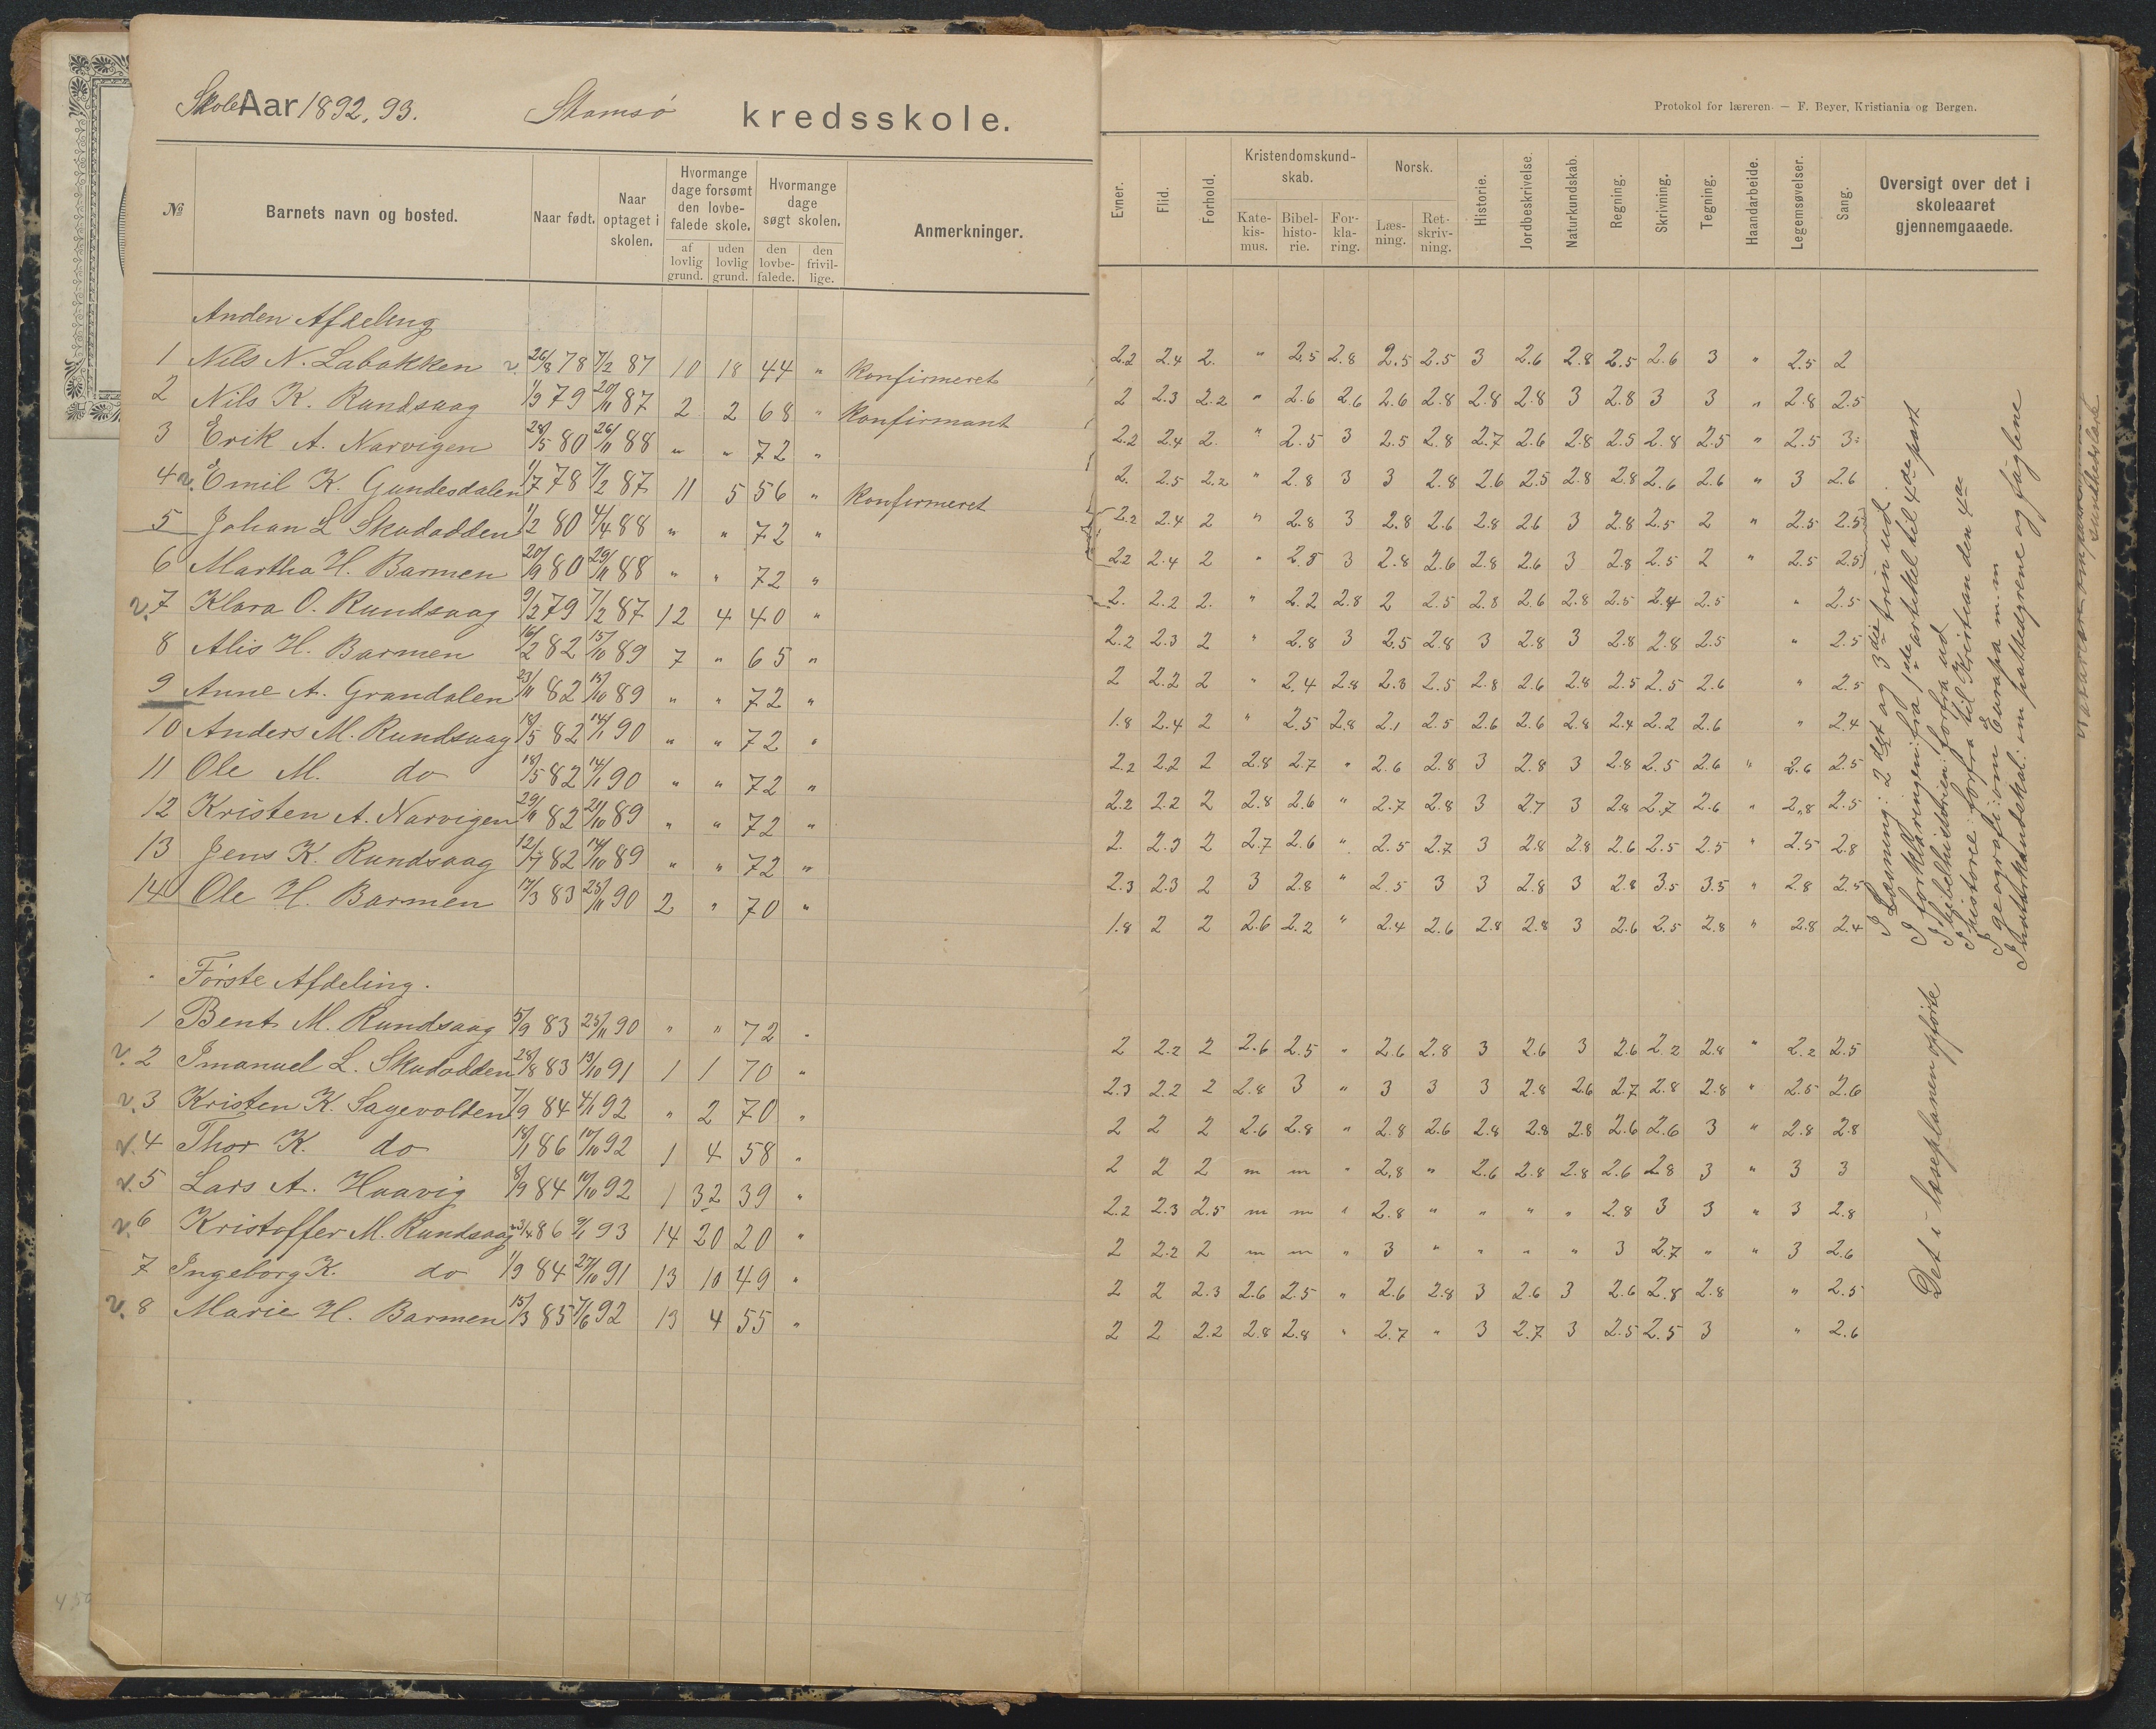 Skole Aar 1892, 93. Stamsø kredsskole.
Protokol for læreren. — F. Beyer, Kristiania og Bergen.
№ Barnets navn og bosted. Naar født. Naar optaget i skolen. Hvormange dage forsømt den lovbefalede skole. af lovlig grund. uden lovlig grund. Hvormange dage søgt skolen. den lovbefalede. den frivillige. Anmerkninger.
Evner. Flid. Forhold. Kristendomskundskab. Katekismus. Bibelhistorie. Forklaring. Norsk. Læsning. Retskrivning. Historie. Jordbeskrivelse. Naturkundskab. Regning. Skrivning. Tegning. Haandarbeide. Legemsøvelser. Sang. Oversigt over det i skoleaaret gjennemgaaede.
Anden Afdeling
1 Nils N. Labakken v. 26/8 78 7/2 87 10 18 44 " Konfirmeret
2 Nils K. Rundsaag 1/3 79 20/11 87 2 2 68 " Konfirmant
3 Erik A. Narvigen 28/5 80 26/11 88 " " 72 "
4 v. Emil K. Gundesdalen 1/7 78 7/2 87 11 5 56 " Konfirmeret
5 Johan L Skudodden 1/2 80 4/4 88 " " 72 "
6 Martha H. Barmen 20/9 80 29/11 88 " " 72 "
v. 7 Klara O. Rundsaag 9/2 79 7/2 87 12 4 40 "
8 Alis H. Barmen 16/2 82 15/10 89 7 " 65 "
9 Anne A. Grandalen 23/11 82 15/10 89 " " 72 "
10 Anders M. Rundsaag 18/5 82 14/1 90 " " 72 "
11 Ole M. do 18/5 82 14/1 90 " " 72 "
12 Kristen A. Narvigen 29/11 82 21/10 89 " " 72 "
13 Jens K. Rundsaag 12/7 82 14/10 89 " " 72 "
14 Ole H. Barmen 17/3 83 25/11 90 2 " 70 "
Første Afdeling.
1 Bent M. Rundsaag 5/9 83 25/11 90 " " 72 "
v. 2 Imanuel L. Skudodden 28/8 83 13/10 91 1 1 70 "
v. 3 Kristen K. Sagevolden 7/9 84 4/1 92 " 2 70 "
v. 4 Thor K. do 18/1 86 10/10 92 1 4 58 "
v. 5 Lars A. Haavig 8/9 84 10/10 92 1 32 39 "
v. 6 Kristoffer M. Rundsaag 23/4 86 9/1 93 14 20 20 "
7 Ingeborg K. do 1/9 84 27/10 91 13 10 49 "
v. 8 Marie H. Barmen 15/3 85 7/6 92 13 4 55 "
2.2 2.4 2. " 2.5 2.8 2.5 2.5 3 2.6 2.8 2.5 2.6 3 " 2.5 2
2 2.3 2.2 " 2.6 2.6 2.6 2.8 2.8 2.8 3 2.8 3 3 " 2.8 2.5
2.2 2.4 2. " 2.5 3 2.5 2.8 2.7 2.6 2.8 2.5 2.8 2.5 " 2.5 3
2. 2.5 2.2 " 2.8 3 3 2.8 2.6 2.5 2.8 2.8 2.6 2.6 " 3 2.6
2.2 2.4 2 " 2.8 3 2.8 2.6 2.8 2.6 3 2.8 2.5 2 " 2.5 2.5
2.2 2.4 2 " 2.5 3 2.8 2.6 2.8 2.6 3 2.8 2.5 2 " 2.5 2.5
2. 2.2 2. " 2.2 2.8 2 2.5 2.8 2.6 2.8 2.5 2.4 2.5 " 2.5
2.2 2.3 2 " 2.8 3 2.5 2.8 3 2.8 3 2.8 2.8 2.5 " 2.5
2 2.2 2 " 2.4 2.8 2.3 2.5 2.8 2.6 2.8 2.5 2.5 2.6 " 2.5
1.8 2.4 2 " 2.5 2.8 2.1 2.5 2.6 2.6 2.8 2.4 2.2 2.6 " 2.4
2.2 2.2 2 2.8 2.7 " 2.6 2.8 3 2.8 3 2.8 2.5 2.6 " 2.6 2.5
2.2 2.2 2 2.8 2.6 " 2.7 2.8 3 2.7 3 2.8 2.7 2.6 " 2.8 2.5
2. 2.3 2 2.7 2.6 " 2.5 2.7 3 2.8 2.8 2.6 2.5 2.5 " 2.5 2.8
2.3 2.3 2 3 2.8 " 2.5 3 3 2.8 3 2.8 3.5 3.5 " 2.8 2.5
1.8 2 2 2.6 2.2 " 2.4 2.6 2.8 2.8 3 2.6 2.5 2.8 " 2.8 2.4
2 2.2 2 2.6 2.5 " 2.6 2.8 3 2.6 3 2.6 2.2 2.8 " 2.2 2.5
2.3 2.2 2 2.8 3 " 3 3 3 2.8 2.6 2.7 2.8 2.8 " 2.5 2.6
2 2 2 2.6 2.8 " 2.8 2.6 2.8 2.8 2.8 2.6 2.6 3 " 2.8 2.8
2 2 2 m m " 2.8 " 2.6 2.8 2.8 2.6 2.8 3 " 3 3
2.2 2.3 2.5 m m " 2.8 " " " " 2.8 3 3 " 3 2.8
2 2.2 2 m m " 3 " " " " 3 2.7 " " 3 2.6
2 2 2.3 2.6 2.5 " 2.6 2.8 3 2.6 3 2.6 2.8 2.8 " 2.5
2 2 2.2 2.8 2.8 " 2.7 " 3 2.7 3 2.5 2.5 3 " 2.6
I Læsning: 2det og 3die trin ud.
I forklaringen: fra 1ste artikel til 4de part
I bibelhistorien: forfra ud
I historie: forfra til Kristian den 4de
I geografi: om Europa m.m
I naturkundskab: om pattedyrene og fuglene
Det i læseplanen opførte